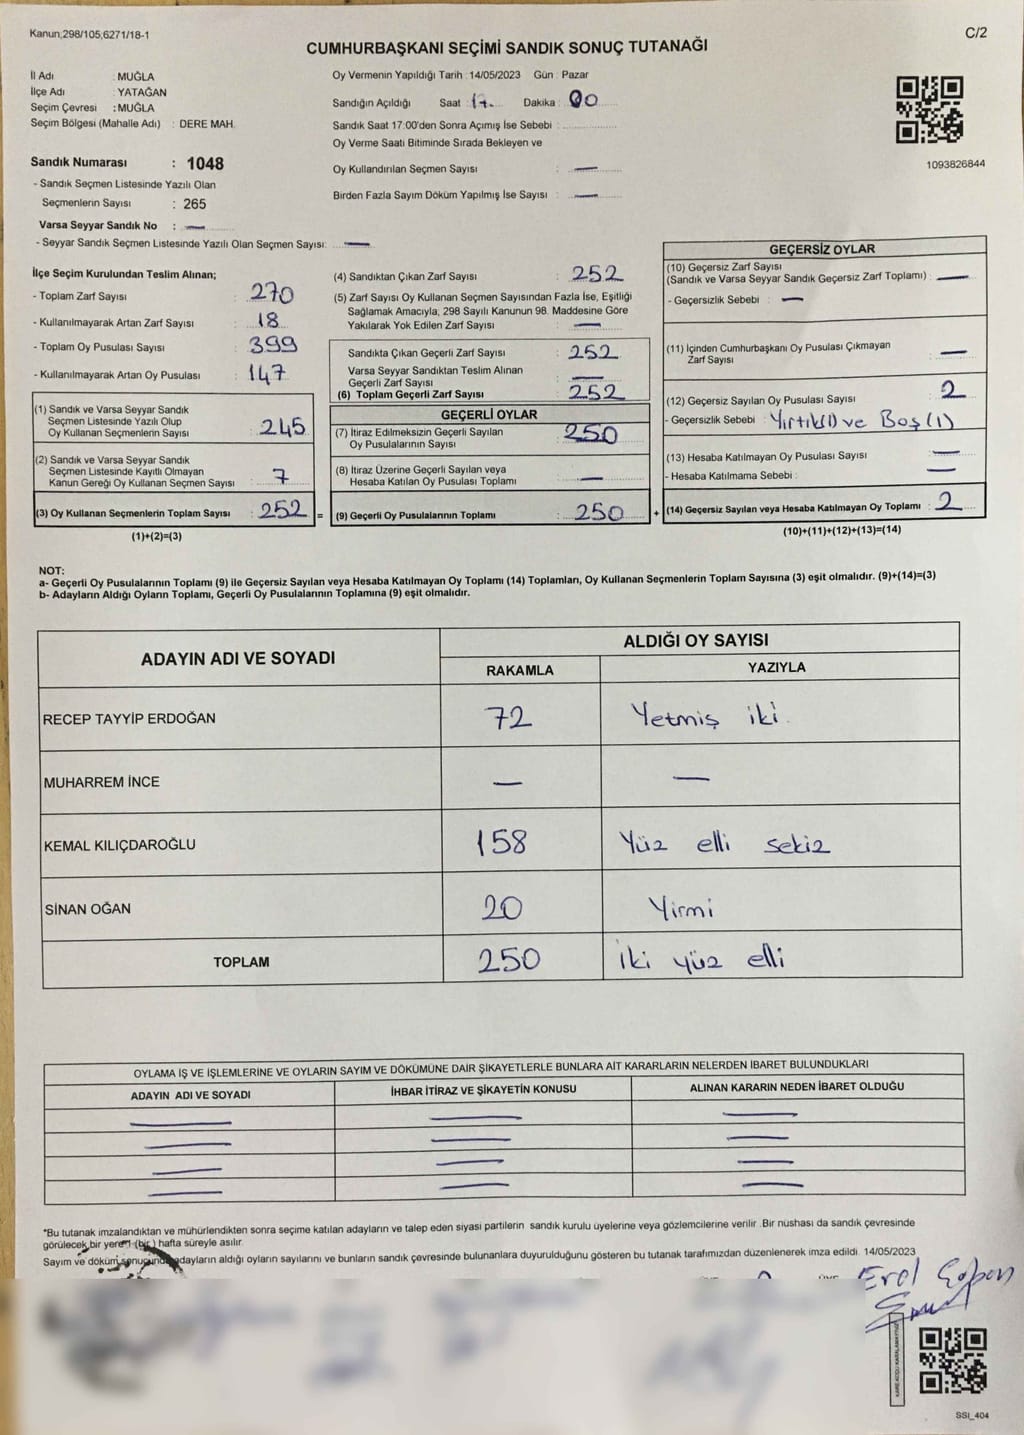 Kanun;298/105;6271/18-1
C/2
CUMHURBAŞKANI SEÇİMİ SANDIK SONUÇ TUTANAĞI
İl Adı : MUĞLA
İlçe Adı : YATAĞAN
Seçim Çevresi : MUĞLA
Seçim Bölgesi (Mahalle Adı) : DERE MAH.
Sandık Numarası : 1048
- Sandık Seçmen Listesinde Yazılı Olan
Seçmenlerin Sayısı : 265
Varsa Seyyar Sandık No : —
- Seyyar Sandık Seçmen Listesinde Yazılı Olan Seçmen Sayısı: —
Oy Vermenin Yapıldığı Tarih : 14/05/2023 Gün : Pazar
Sandığın Açıldığı Saat : 17 Dakika : 00
Sandık Saat 17:00'den Sonra Açılmış İse Sebebi :
Oy Verme Saati Bitiminde Sırada Bekleyen ve
Oy Kullandırılan Seçmen Sayısı : —
Birden Fazla Sayım Döküm Yapılmış İse Sayısı : —
1093826844
İlçe Seçim Kurulundan Teslim Alınan;
- Toplam Zarf Sayısı : 270
- Kullanılmayarak Artan Zarf Sayısı : 18
- Toplam Oy Pusulası Sayısı : 399
- Kullanılmayarak Artan Oy Pusulası : 147
(1) Sandık ve Varsa Seyyar Sandık
Seçmen Listesinde Yazılı Olup
Oy Kullanan Seçmenlerin Sayısı : 245
(2) Sandık ve Varsa Seyyar Sandık
Seçmen Listesinde Kayıtlı Olmayan
Kanun Gereği Oy Kullanan Seçmen Sayısı : 7
(3) Oy Kullanan Seçmenlerin Toplam Sayısı : 252 =
(1)+(2)=(3)
(4) Sandıktan Çıkan Zarf Sayısı : 252
(5) Zarf Sayısı Oy Kullanan Seçmen Sayısından Fazla İse, Eşitliği
Sağlamak Amacıyla, 298 Sayılı Kanunun 98. Maddesine Göre
Yakılarak Yok Edilen Zarf Sayısı : —
Sandıkta Çıkan Geçerli Zarf Sayısı : 252
Varsa Seyyar Sandıktan Teslim Alınan
Geçerli Zarf Sayısı : —
(6) Toplam Geçerli Zarf Sayısı : 252
GEÇERLİ OYLAR
(7) İtiraz Edilmeksizin Geçerli Sayılan
Oy Pusulalarının Sayısı : 250
(8) İtiraz Üzerine Geçerli Sayılan veya
Hesaba Katılan Oy Pusulası Toplamı : —
(9) Geçerli Oy Pusulalarının Toplamı : 250 +
GEÇERSİZ OYLAR
(10) Geçersiz Zarf Sayısı
(Sandık ve Varsa Seyyar Sandık Geçersiz Zarf Toplamı) : —
- Geçersizlik Sebebi : —
(11) İçinden Cumhurbaşkanı Oy Pusulası Çıkmayan
Zarf Sayısı : —
(12) Geçersiz Sayılan Oy Pusulası Sayısı : 2
- Geçersizlik Sebebi : Yırtık(1) ve Boş (1)
(13) Hesaba Katılmayan Oy Pusulası Sayısı : —
- Hesaba Katılmama Sebebi : —
(14) Geçersiz Sayılan veya Hesaba Katılmayan Oy Toplamı : 2
(10)+(11)+(12)+(13)=(14)
NOT:
a- Geçerli Oy Pusulalarının Toplamı (9) ile Geçersiz Sayılan veya Hesaba Katılmayan Oy Toplamı (14) Toplamları, Oy Kullanan Seçmenlerin Toplam Sayısına (3) eşit olmalıdır. (9)+(14)=(3)
b- Adayların Aldığı Oyların Toplamı, Geçerli Oy Pusulalarının Toplamına (9) eşit olmalıdır.
ADAYIN ADI VE SOYADI ALDIĞI OY SAYISI
RAKAMLA YAZIYLA
RECEP TAYYİP ERDOĞAN 72 Yetmiş iki
MUHARREM İNCE — —
KEMAL KILIÇDAROĞLU 158 Yüz elli sekiz
SİNAN OĞAN 20 Yirmi
TOPLAM 250 iki yüz elli
OYLAMA İŞ VE İŞLEMLERİNE VE OYLARIN SAYIM VE DÖKÜMÜNE DAİR ŞİKAYETLERLE BUNLARA AİT KARARLARIN NELERDEN İBARET BULUNDUKLARI
ADAYIN ADI VE SOYADI İHBAR İTİRAZ VE ŞİKAYETİN KONUSU ALINAN KARARIN NEDEN İBARET OLDUĞU
*Bu tutanak imzalandıktan ve mühürlendikten sonra seçime katılan adayların ve talep eden siyasi partilerin sandık kurulu üyelerine veya gözlemcilerine verilir. Bir nüshası da sandık çevresinde
görülecek bir yere 1 (bir) hafta süreyle asılır.
Sayım ve döküm sonucunda adayların aldığı oyların sayılarını ve bunların sandık çevresinde bulunanlara duyurulduğunu gösteren bu tutanak tarafımızdan düzenlenerek imza edildi. 14/05/2023
Erol
SSI_404